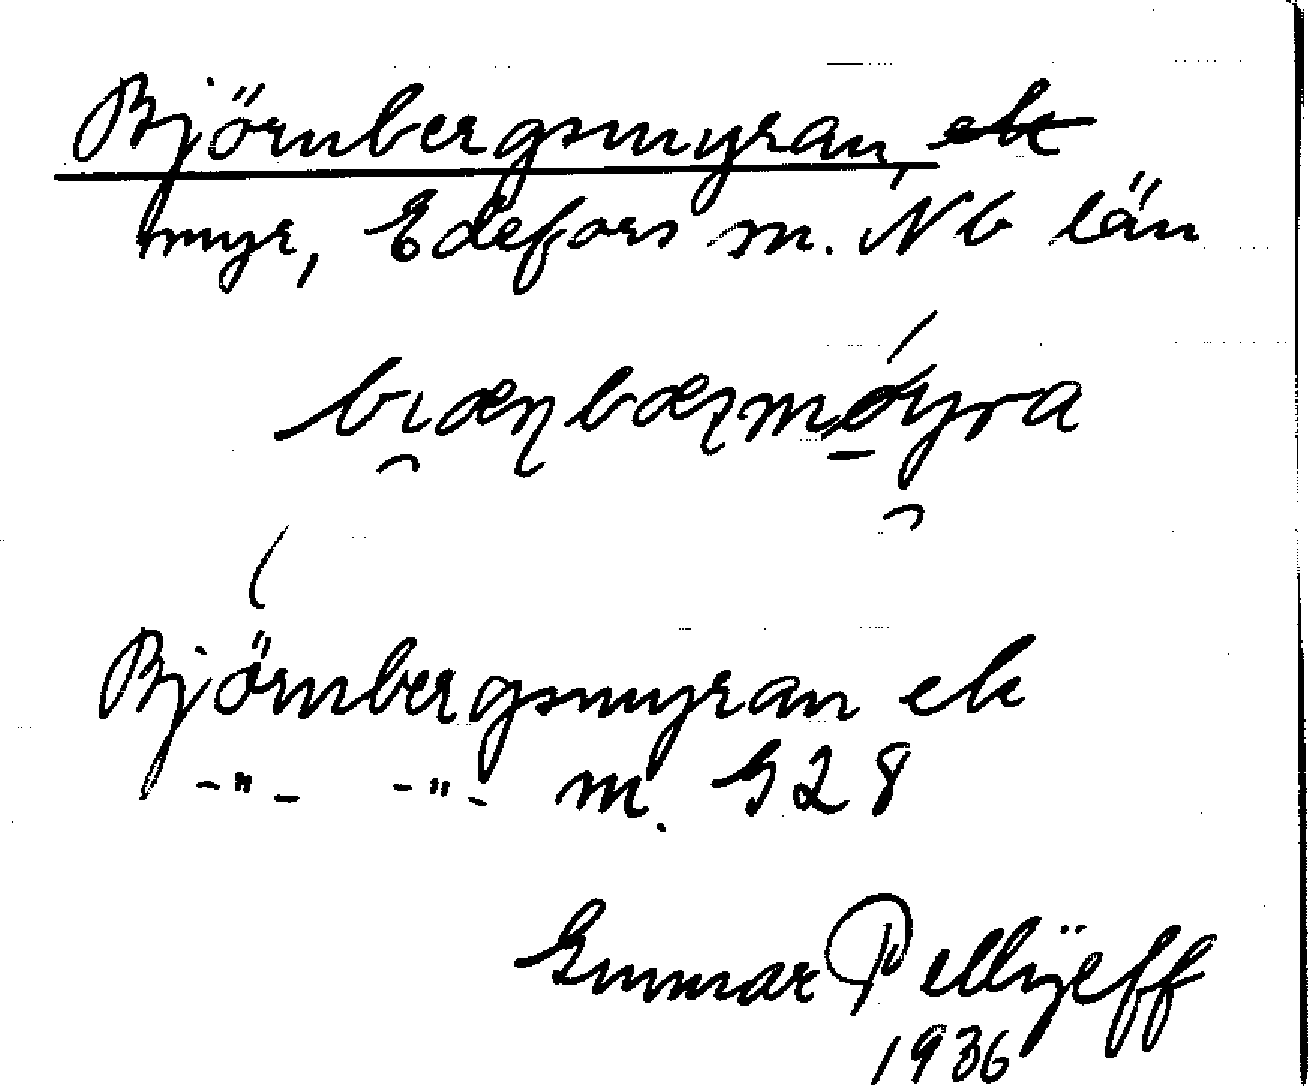 Björnbergsmyran, ek
myr, Edefors sn. Nb län
Björnbergsmyran ek
-"- -"- m. G28
Gunnar Pellijeff
1936